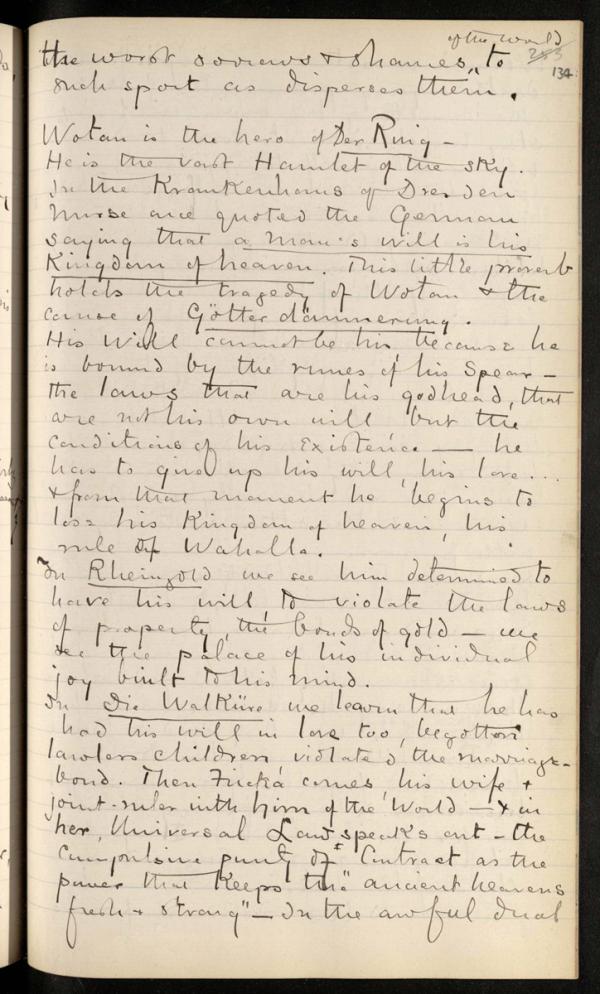 of the World
the worst sorrows & shames, to
283
134
such sport as disperses them.
Wotan is the hero of Der Ring —
He is the vast Hamlet of the sky.
In the Krankenhaus of Dresden
Nurse once quoted the German
saying that a man's will is his
Kingdom of heaven. This little proverb
holds the tragedy of Wotan & the
cause of Götterdämmerung.
His will cannot be his because he
is bound by the runes of his Spear —
the laws that are his godhead, that
are not his own will but the
conditions of his existence — he
has to give up his will, his love...
& from that moment he begins to
lose his Kingdom of heaven, his
rule of Walhalla.
In Rheingold we see him determined to
have his will, to violate the laws
of property, the bonds of gold — we
see the palace of his individual
joy built to his mind.
In Die Walküre we learn that he has
had this will in love too, begotten
lawless children, violated the marriage-
bond. Then Fricka comes, his wife &
joint-ruler with him of the World — & in
her, Universal Law speaks out — the
compulsive purity of Contract as the
power that keeps the "ancient heavens
fresh & strong" — In the awful dual